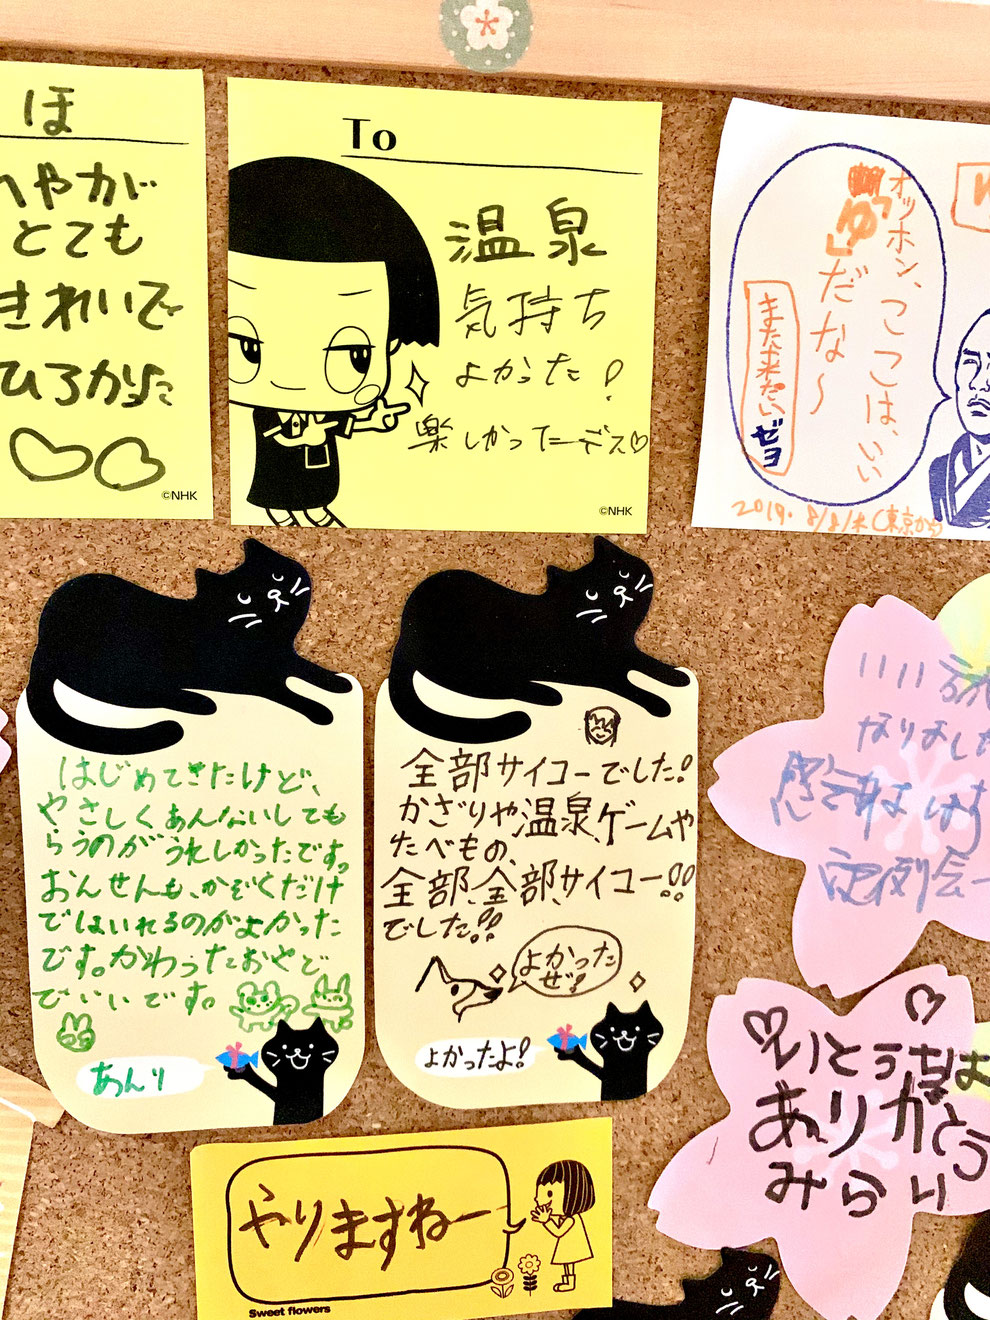 ほ
へやが
とても
きれいで
ひろかった
©NHK
To
温泉
気持ち
よかった!
楽しかったデス♡
©NHK
オッホン、ここは、いい
「ゆ」だな〜
また来たいゼヨ
2019. 8/8/木(東京から
はじめてきたけど、
やさしくあんないしても
らうのがうれしかったです。
おんせんも、かぞくだけ
ではいれるのがよかった
です。かわったおやど
でいいです。
あんり
全部サイコーでした!
かざりや温泉、ゲームや
たべもの、
全部、全部、サイコー!!
でした!!
よかった
ぜ!
よかったよ!
いい
なりました
感謝します
定例会一
とうちは
ありがとう
みらい
やりますねー
Sweet flowers